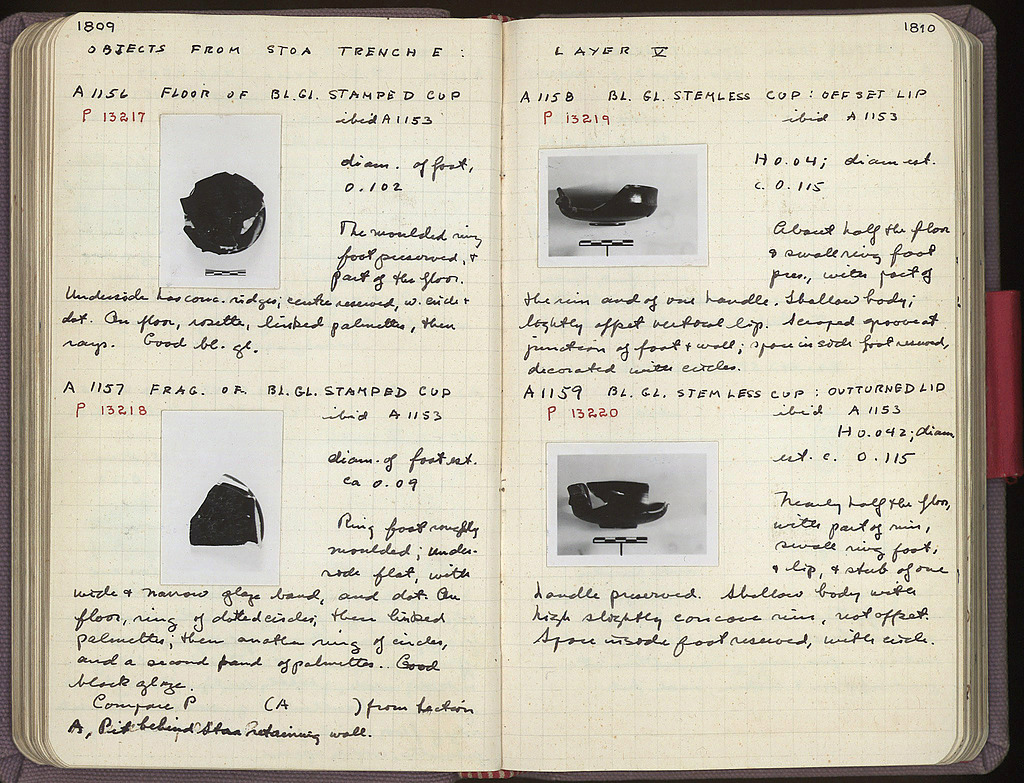 1809
OBJECTS FROM STOA TRENCH E :
A 1156 FLOOR OF BL. GL. STAMPED CUP
P 13217
ibid A 1153
diam. of foot,
0.102
The moulded ring
foot preserved, +
part of the floor.
Underside has conc. ridges; centre reserved, w. circle +
dot. On floor, rosette, linked palmettes, then
rays. Good bl. gl.
A 1157 FRAG. OF BL. GL. STAMPED CUP
P 13218
ibid A 1153
diam. of foot est.
ca 0.09
Ring foot roughly
moulded; under-
side flat, with
wide + narrow glaze band, and dot. On
floor, ring of dotted circles; then linked
palmettes; then another ring of circles,
and a second band of palmettes. Good
black glaze.
Compare P (A ) from Section
A, Pit behind Stoa retaining wall.
1810
LAYER V
A 1158 BL. GL. STEMLESS CUP : OFFSET LIP
P 13219
ibid A 1153
H 0.04; diam est.
c. 0.115
About half the floor
+ small ring foot
pres., with part of
the rim and of one handle. Shallow body;
lightly offset vertical lip. Scraped groove at
junction of foot + wall; space inside foot reserved,
decorated with circles.
A 1159 BL. GL. STEMLESS CUP : OUTTURNED LIP
P 13220
ibid A 1153
H 0.042; diam
est. c. 0.115
Nearly half the floor,
with part of rim,
small ring foot,
+ lip, + stub of one
handle preserved. Shallow body with
high slightly concave rim, not offset.
Space inside foot reserved, with circle.